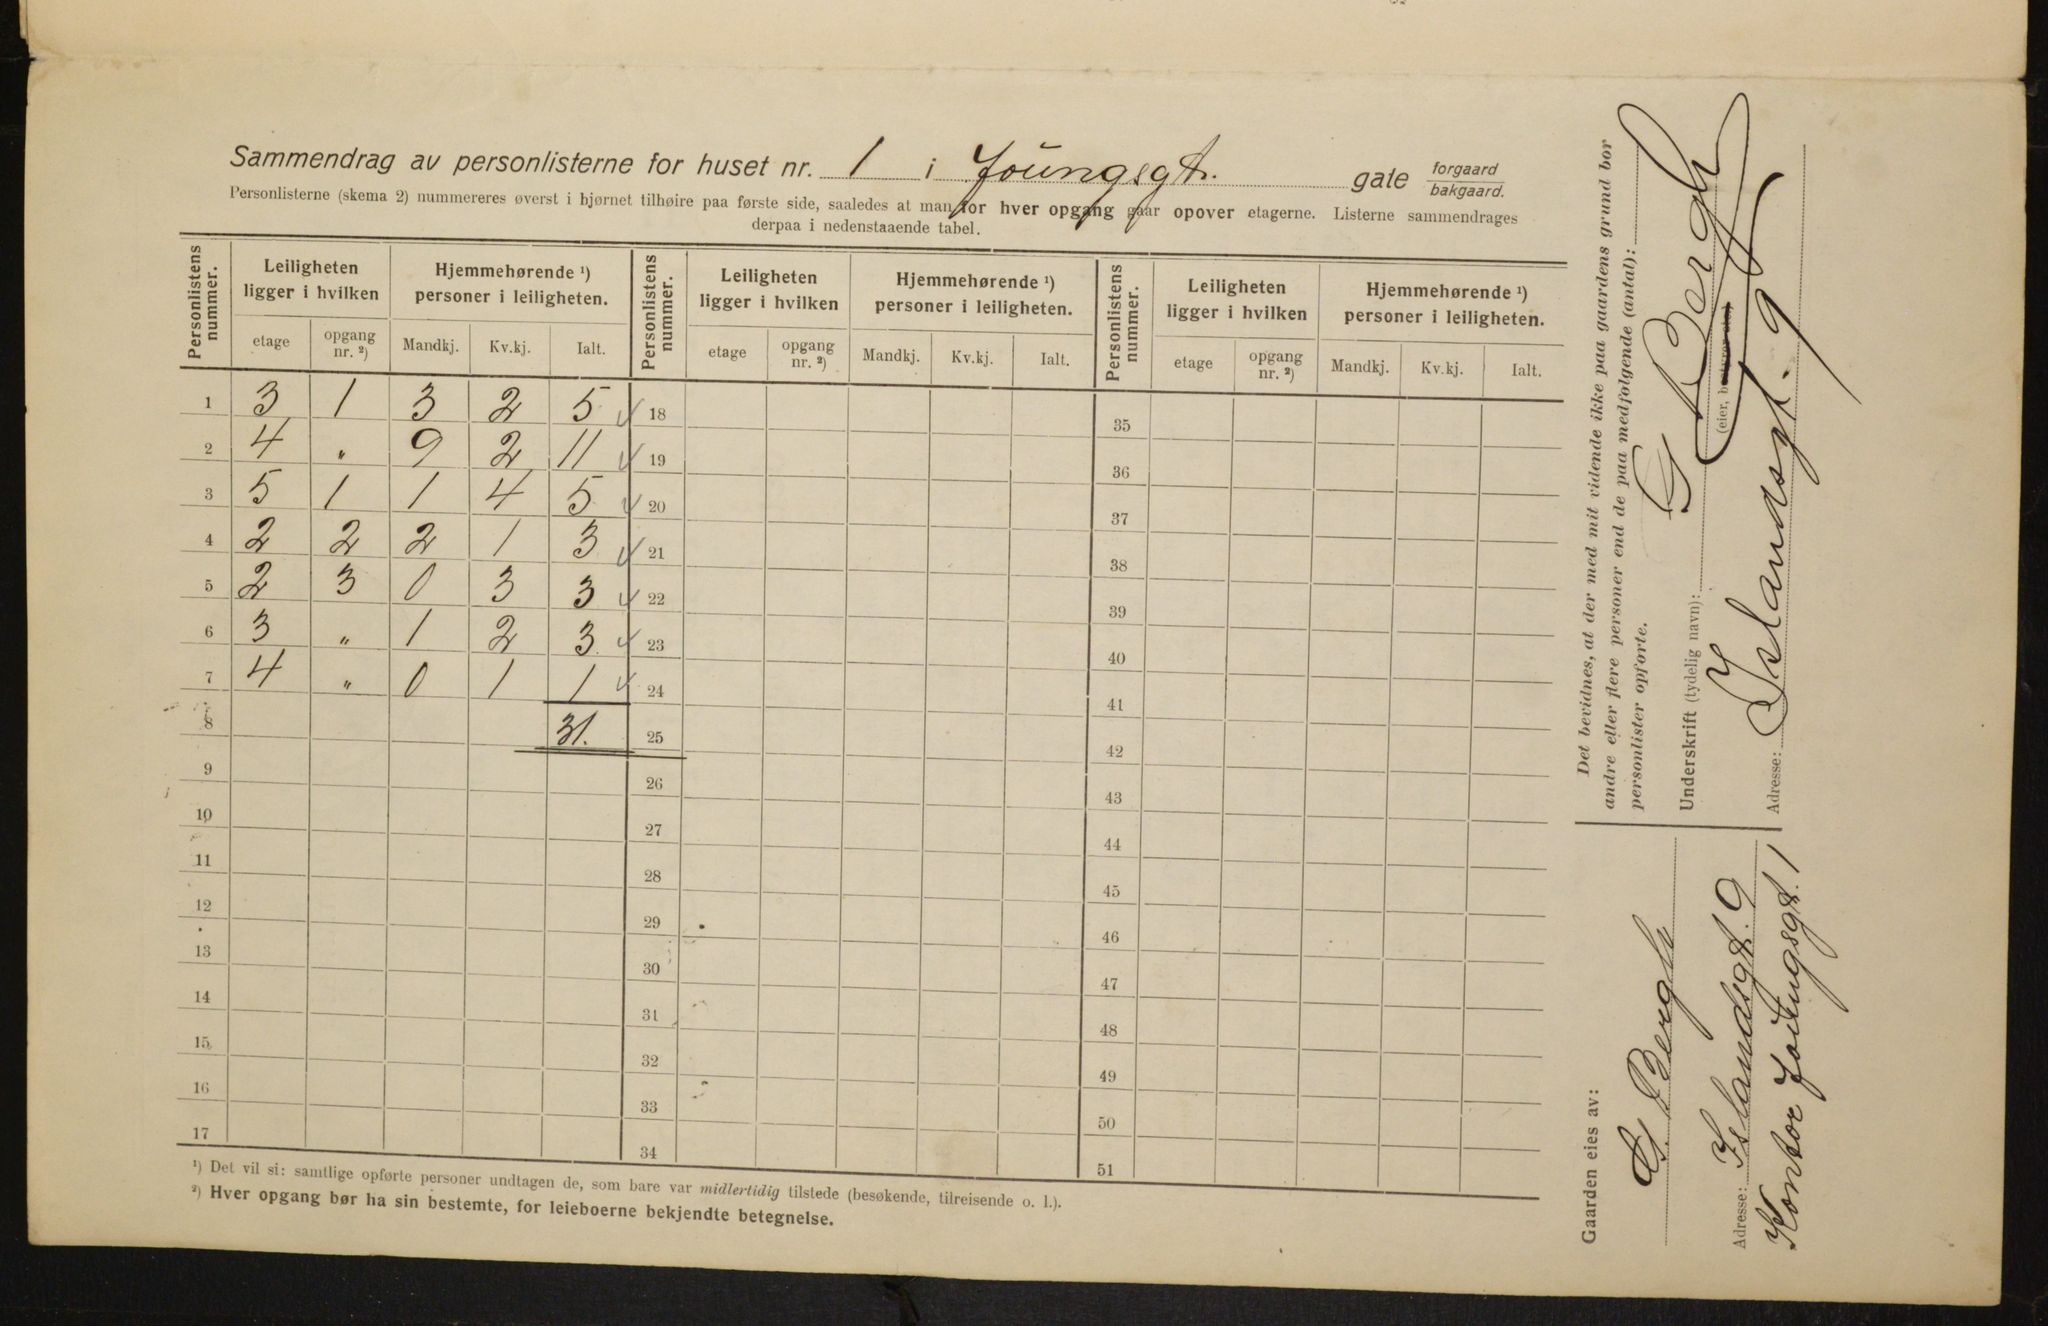 Sammendrag av personlisterne for huset nr. 1 i Youngsgt. gate forgaard bakgaard.
Personlisterne (skema 2) nummereres øverst i hjørnet tilhøire paa første side, saaledes at man for hver opgang gaar opover etagerne. Listerne sammendrages
derpaa i nedenstaaende tabel.
Personlistens nummer. Leiligheten ligger i hvilken Hjemmehørende ¹) personer i leiligheten. Personlistens nummer. Leiligheten ligger i hvilken Hjemmehørende ¹) personer i leiligheten. Personlistens nummer. Leiligheten ligger i hvilken Hjemmehørende ¹) personer i leiligheten.
etage opgang nr. ²) Mandkj. Kv.kj. Ialt. etage opgang nr. ²) Mandkj. Kv.kj. Ialt. etage opgang nr. ²) Mandkj. Kv.kj. Ialt.
1 3 1 3 2 5 18 35
2 4 " 9 2 11 19 36
3 5 1 1 4 5 20 37
4 2 2 2 1 3 21 38
5 2 3 0 3 3 22 39
6 3 " 1 2 3. 23 40
7 4 " 0 1 1 24 41
8 31. 25 42
9 26 43
10 27 44
11 28 45
12 29 46
13 30 47
14 31 48
15 32 49
16 33 50
17 34 51
¹) Det vil si: samtlige opførte personer undtagen de, som bare var midlertidig tilstede (besøkende, tilreisende o. l.).
²) Hver opgang bør ha sin bestemte, for leieboerne bekjendte betegnelse.
Det bevidnes, at der med mit vidende ikke paa gaardens grund bor
andre eller flere personer end de paa medfølgende (antal):
personlister opførte.
Underskrift (tydelig navn): G Bergh
(eier, bestyrer etc.)
Adresse: Islandsgt. 9
Gaarden eies av:
G. Bergh
Adresse: Islandsgt. 9
Kontor Youngsgt. 1